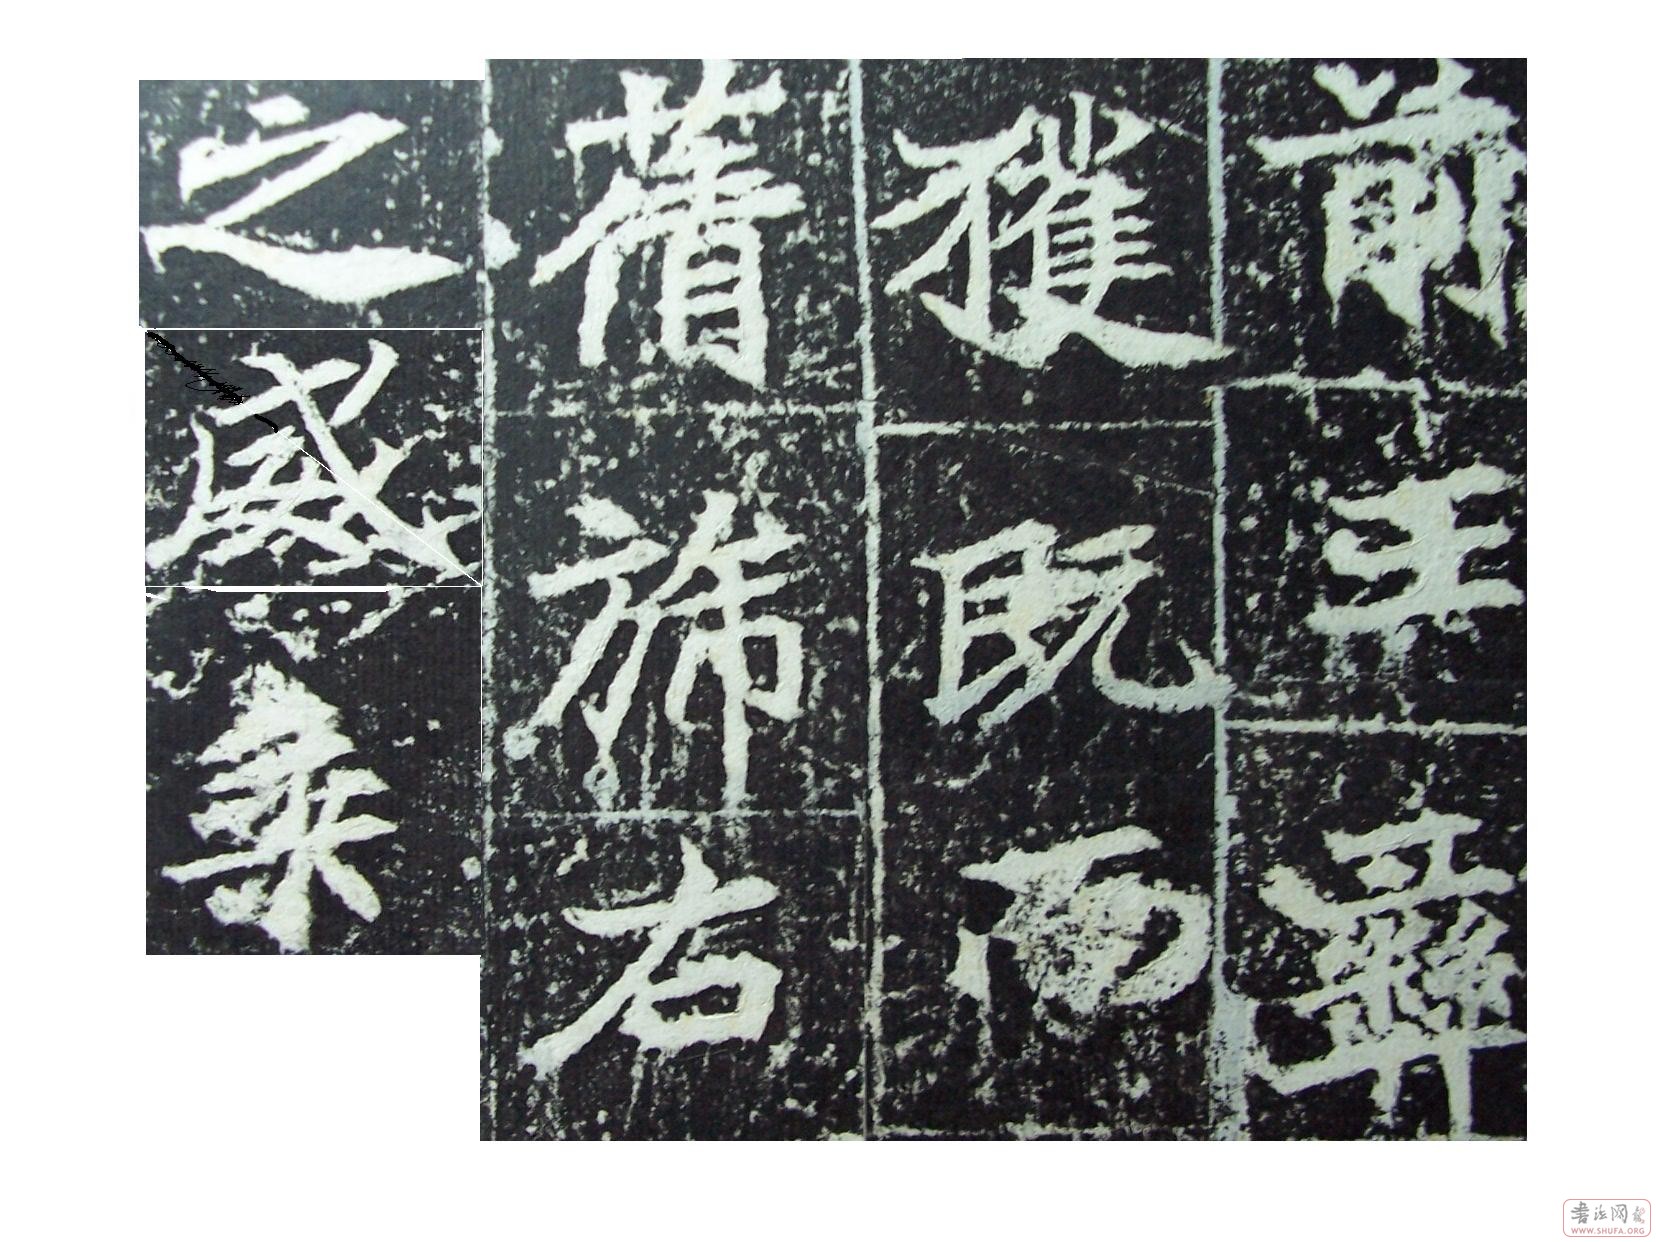 前王彝
獲既而
蒨斾右
之盛乘
書法网
WWW.SHUFA.ORG